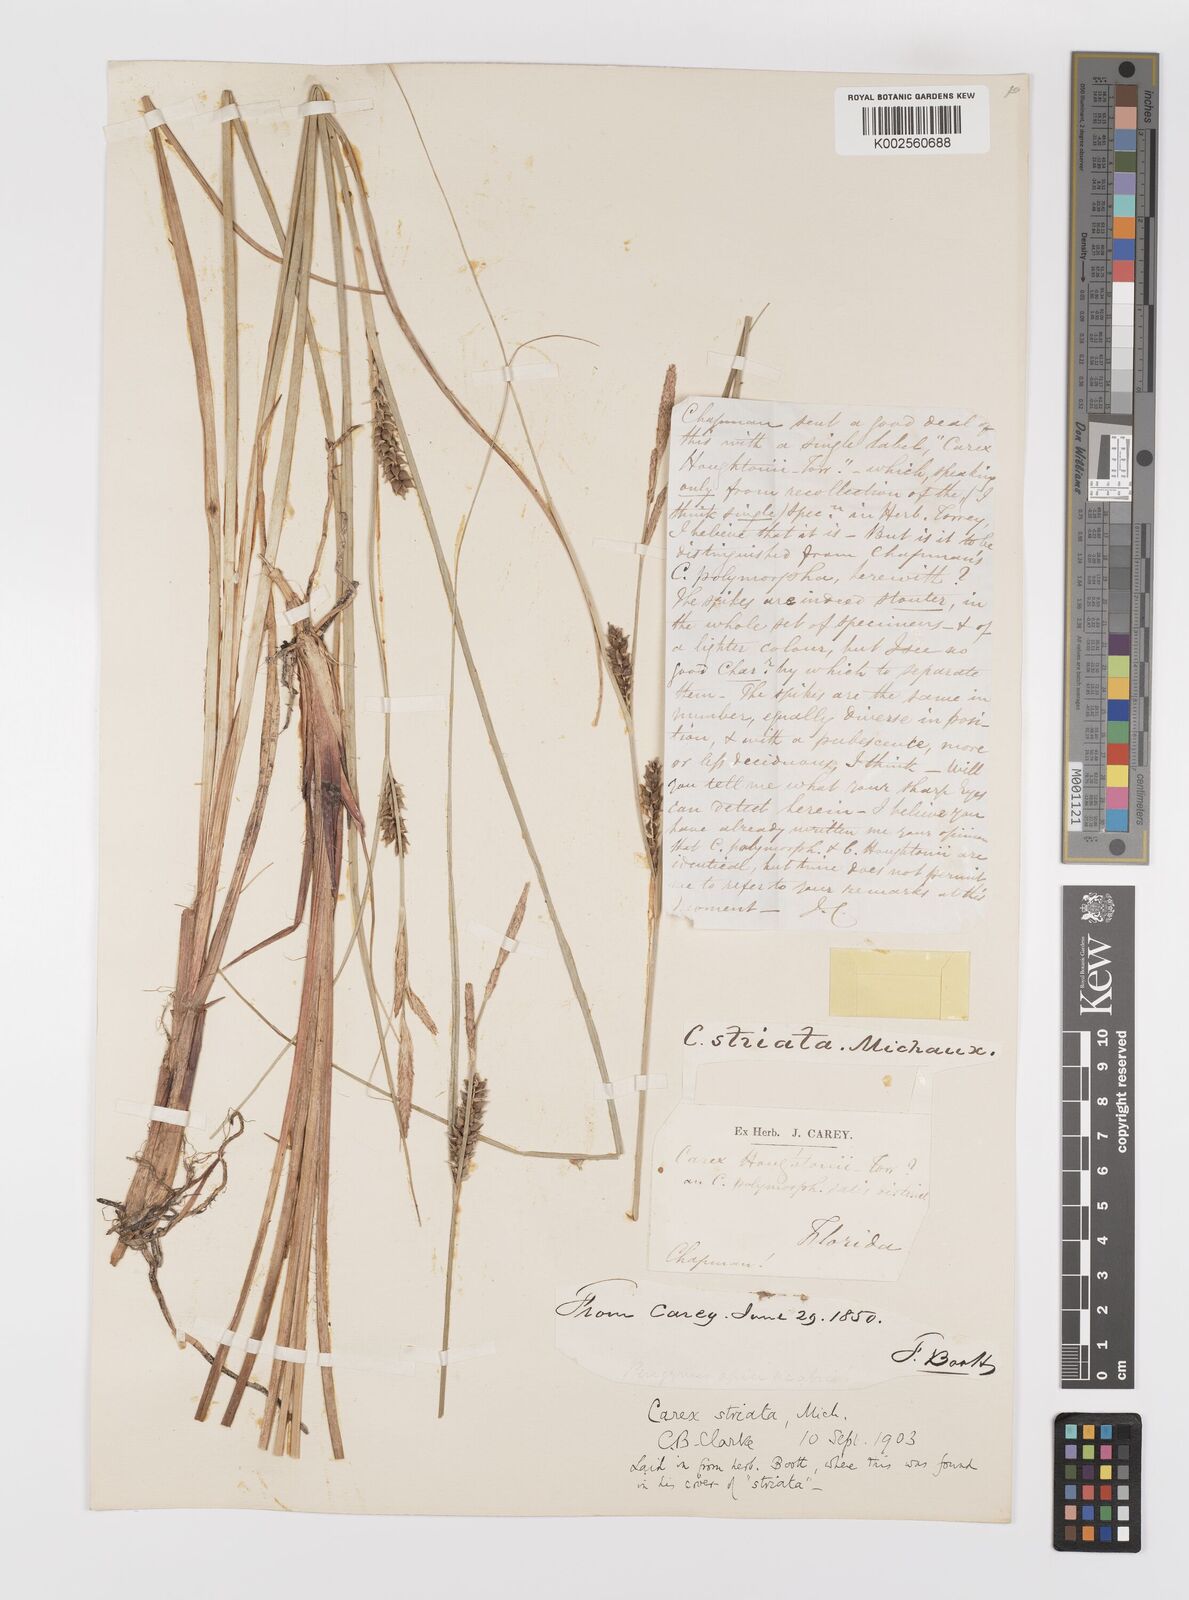 ROYAL BOTANIC GARDENS KEW
K002560688
Chapman sent a good deal of
this with a single label, "Carex
Houghtonii - Torr." - which, speaking
only from recollection of the (I
think single) spec.n in Herb. Torrey,
I believe that it is - But is it to be
distinguished from Chapman's
C. polymorpha, herewith?
The spikes are indeed stouter, in
the whole set of specimens - & of
a lighter colour, but I see no
good Char.r by which to separate
them - The spikes are the same in
number, equally diverse in posi-
tion, & with a pubescence, more
or less deciduous, I think - Will
you tell me what your sharp eyes
can detect herein - I believe you
have already written me your opinion
that C. polymorph. & C. Houghtonii are
identical, but time does not permit
me to refer to your remarks at this
moment - J. C.
C. striata. Michaux.
Ex Herb. J. CAREY.
Carex Houghtonii - Torr?
an C. polymorph. satis distinct
Florida
Chapman!
From Carey. June 29. 1850.
F. Boott
Carex striata, Mich.
C.B. Clarke 10 Sept. 1903
Laid in from herb. Boott, where this was found
in his cover of "striata" -
inches
centimetres
Density
Don Williams
M001121
Kew
Royal Botanic Gardens
copyright reserved
10
9
8
7
6
5
4
3
2
1
0
cm